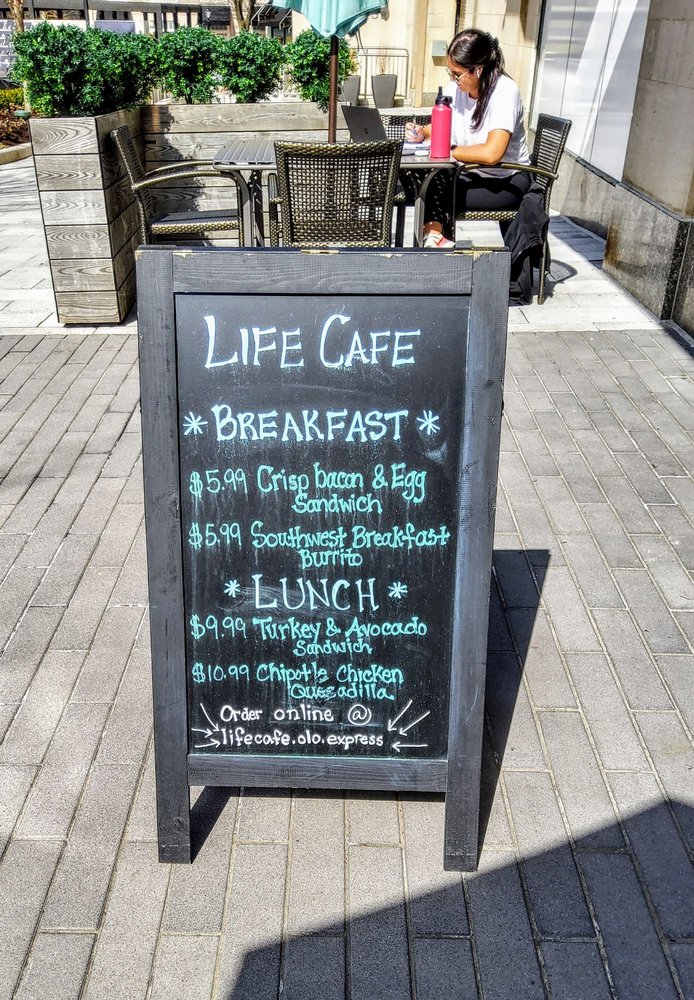 LIFE CAFE
* BREAKFAST *
$5.99 Crisp bacon & Egg
Sandwich
$5.99 Southwest Breakfast
Burrito
* LUNCH *
$9.99 Turkey & Avocado
Sandwich
$10.99 Chipotle Chicken
Quesadilla
Order online @
lifecafe.olo.express